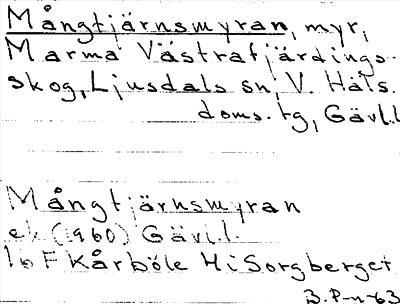 Mångtjärnsmyran, myr,
Marma Västrafjärdings-
skog, Ljusdals sn, V. Häls.
doms. tg, Gävl.l
Mångtjärnsmyran
ek (1960) Gävl.l.
16 F Kårböle 4 i Sorgberget
B. P-n 63